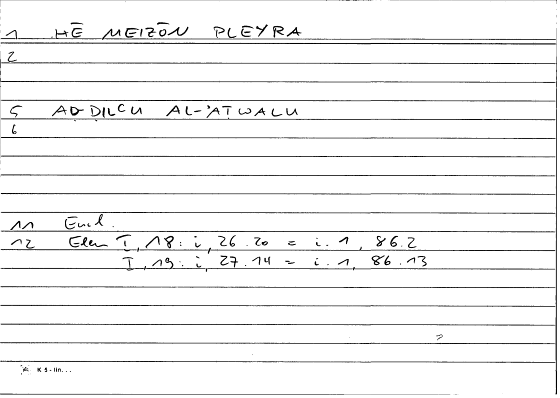 1 HĒ MEIZŌN PLEYRA
2
5 AḌ-ḌILʿU AL-ʾAṬWALU
6
11 Eucl.
12 Elem I, 18: i, 26.20 = i.1, 86.2
I, 19: i, 27.14 = i.1, 86.13
K 5 - lin...